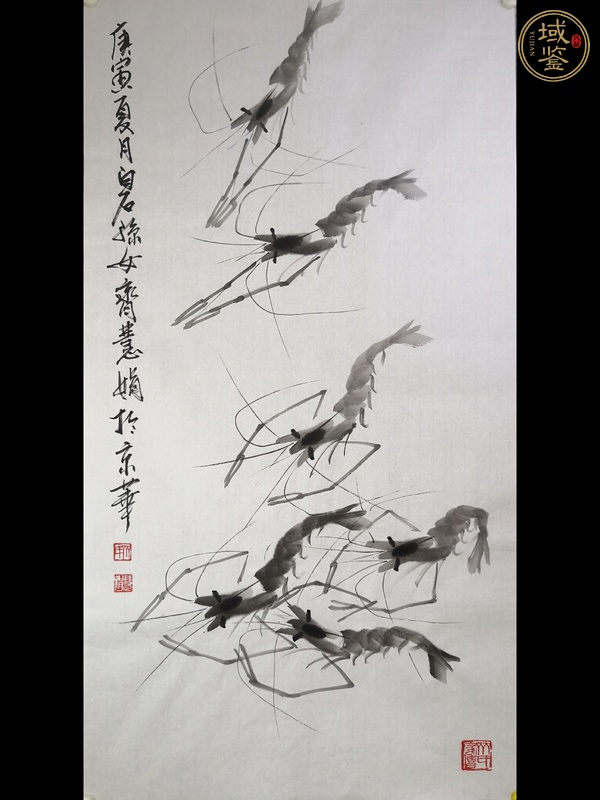 庚寅夏月白石孫女齊慧娟於京華
域鉴
YUJIAN